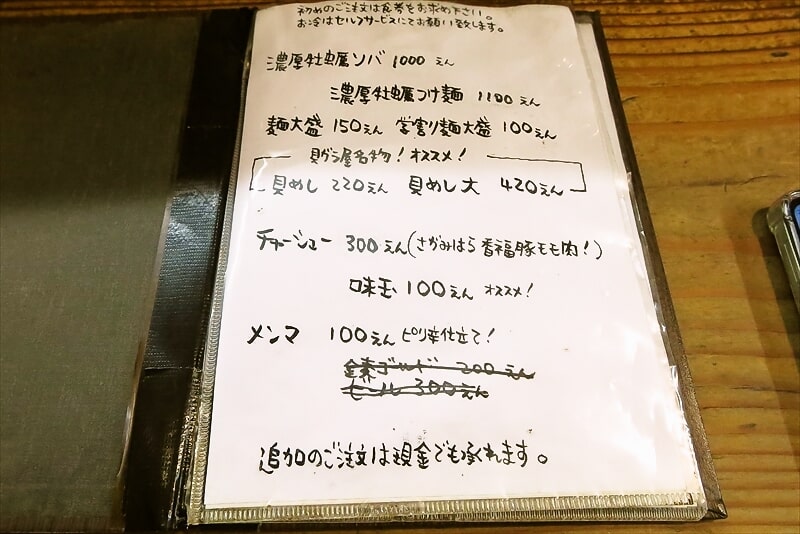 初めのご注文は食券をお求め下さい。
お冷はセルフサービスにてお願い致します。
濃厚牡蠣ソバ 1000えん
濃厚牡蠣つけ麺 1100えん
麺大盛 150えん 学割麺大盛 100えん
貝がら屋名物!オススメ!
貝めし 220えん 貝めし大 420えん
チャーシュー 300えん(さがみはら香福豚モモ肉!)
味玉 100えん オススメ!
メンマ 100えん ピリ辛仕立て!
ゴールド 200えん
ビール 300えん
追加のご注文は現金でも承れます。